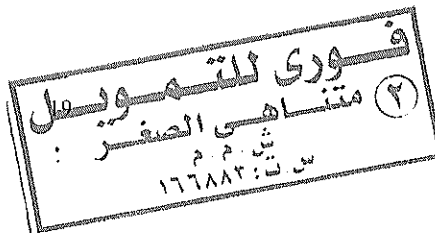 فورى للتمويل
٢ متناهى الصغر :
ش . م . م
س . ت : ١٦٦٨٨٣